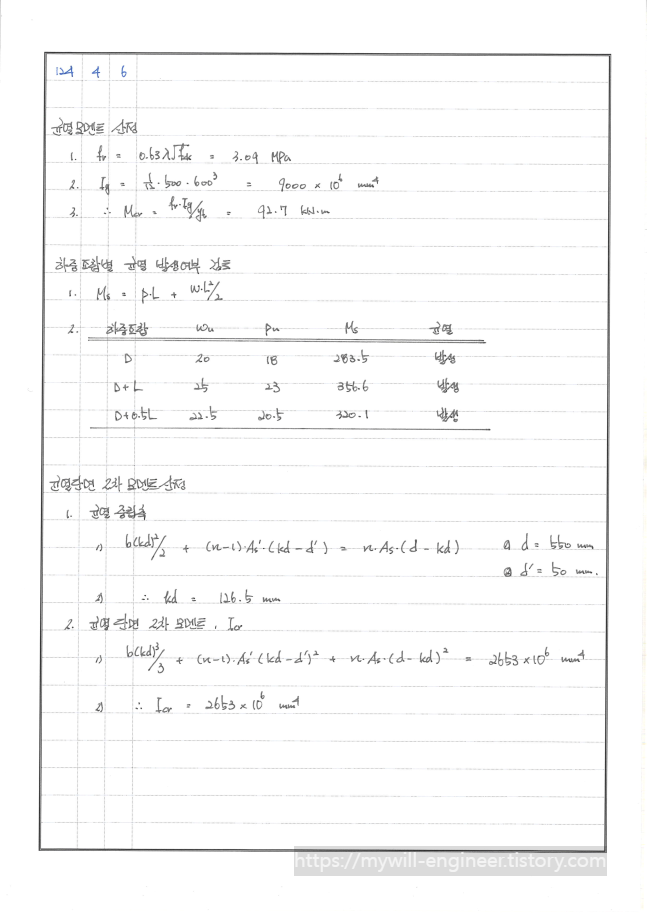 124 4 6
균열모멘트 산정
1. fr = 0.63λ√fck = 3.09 MPa
2. Ig = 1/12 · 500 · 600³ = 9000 × 10⁶ mm⁴
3. ∴ Mcr = fr·Ig/yt = 92.7 kN·m
하중조합별 균열 발생여부 검토
1. Ms = P·L + w·L²/2
2. 하중조합 Wu Pu Ms 균열
D 20 18 283.5 발생
D+L 25 23 356.6 발생
D+0.5L 22.5 20.5 320.1 발생
균열단면 2차 모멘트 산정
1. 균열 중립축
1) b(kd)²/2 + (n-1)·As'·(kd-d') = n·As·(d-kd) @ d = 550 mm
@ d' = 50 mm.
2) ∴ kd = 126.5 mm
2. 균열 단면 2차 모멘트, Icr
1) b(kd)³/3 + (n-1)·As'(kd-d')² + n·As·(d-kd)² = 2653 × 10⁶ mm⁴
2) ∴ Icr = 2653 × 10⁶ mm⁴
https://mywill-engineer.tistory.com